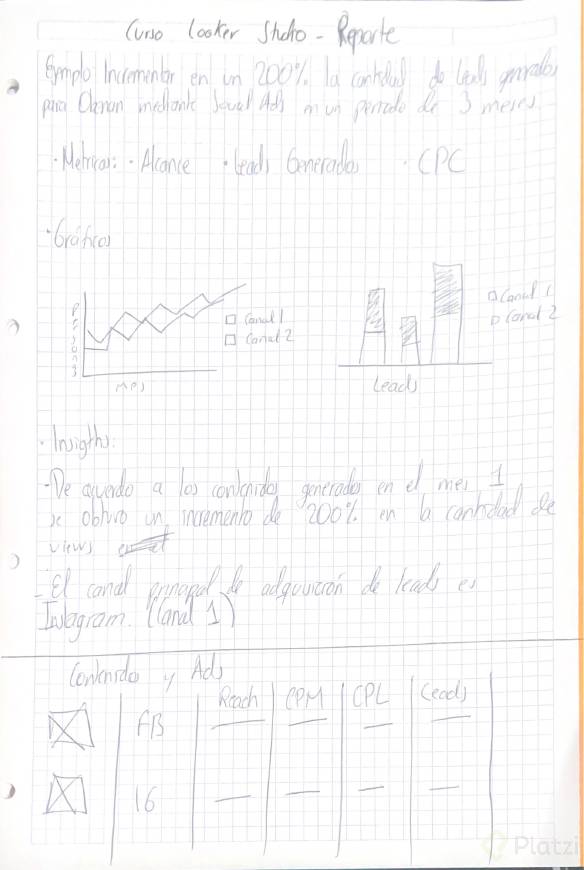 Curso Looker Studio - Reporte
Ejmplo Incrementar en un 200% la cantidad de leads generados
para mediante Social Ads en un periodo de 3 meses
· Metricas: · Alcance · Leads Generados · CPC
· Gráficos
Personas
Mes
Canal 1
Canal 2
Leads
Canal 1
Canal 2
· Insigths:
- De acuerdo a los contenidos generados en el mes 1
se obtuvo un incremento de 200% en la cantidad de
views
- El canal principal de adquisición de leads es
Instagram. (Canal 1)
Contenidos y Ads
Reach CPM CPL Leads
FB
IG
Platzi